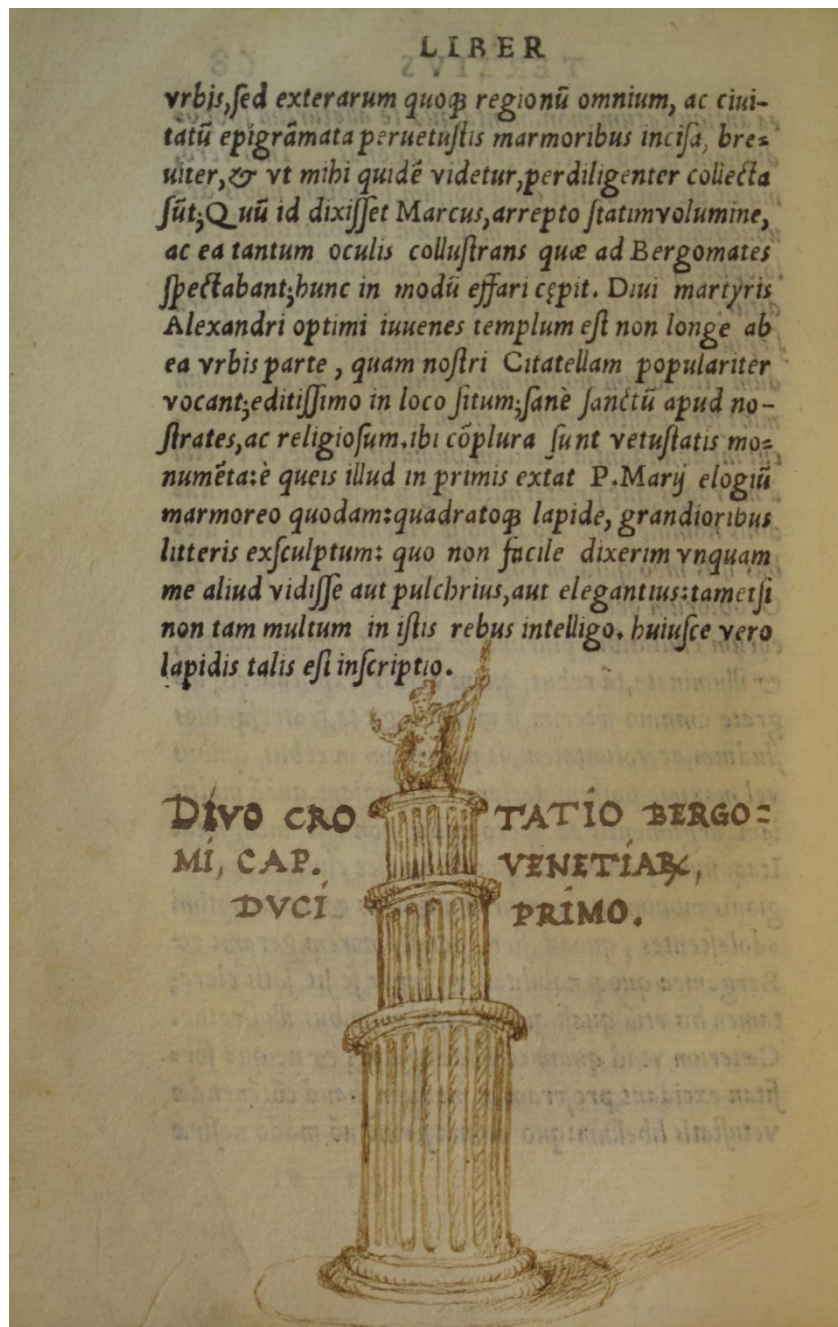 LIBER
vrbis,sed exterarum quoqꝫ regionũ omnium, ac ciui-
tatũ epigrãmata peruetustis marmoribus incisa, bre-
uiter,& vt mihi quidẽ videtur,perdiligenter collecta
sũt;Quũ id dixisset Marcus,arrepto statimvolumine,
ac ea tantum oculis collustrans quæ ad Bergomates
spectabant;hunc in modũ effari cępit. Diui martyris
Alexandri optimi iuuenes templum est non longe ab
ea vrbis parte , quam nostri Citatellam populariter
vocant;editissimo in loco situm;sanè sanctũ apud no-
strates,ac religiosum.ibi cõplura sunt vetustatis mo-
numẽta:è queis illud in primis extat P.Marij elogiũ
marmoreo quodam:quadratoqꝫ lapide, grandioribus
litteris exsculptum: quo non facile dixerim vnquam
me aliud vidisse aut pulchrius,aut elegantius:tametsi
non tam multum in istis rebus intelligo. huiusce vero
lapidis talis est inscriptio.
DÍVO CRO TATÍO BERGO=
MÍ, CAP. VENETÍAꝜ,
DVCÍ PRÍMO.